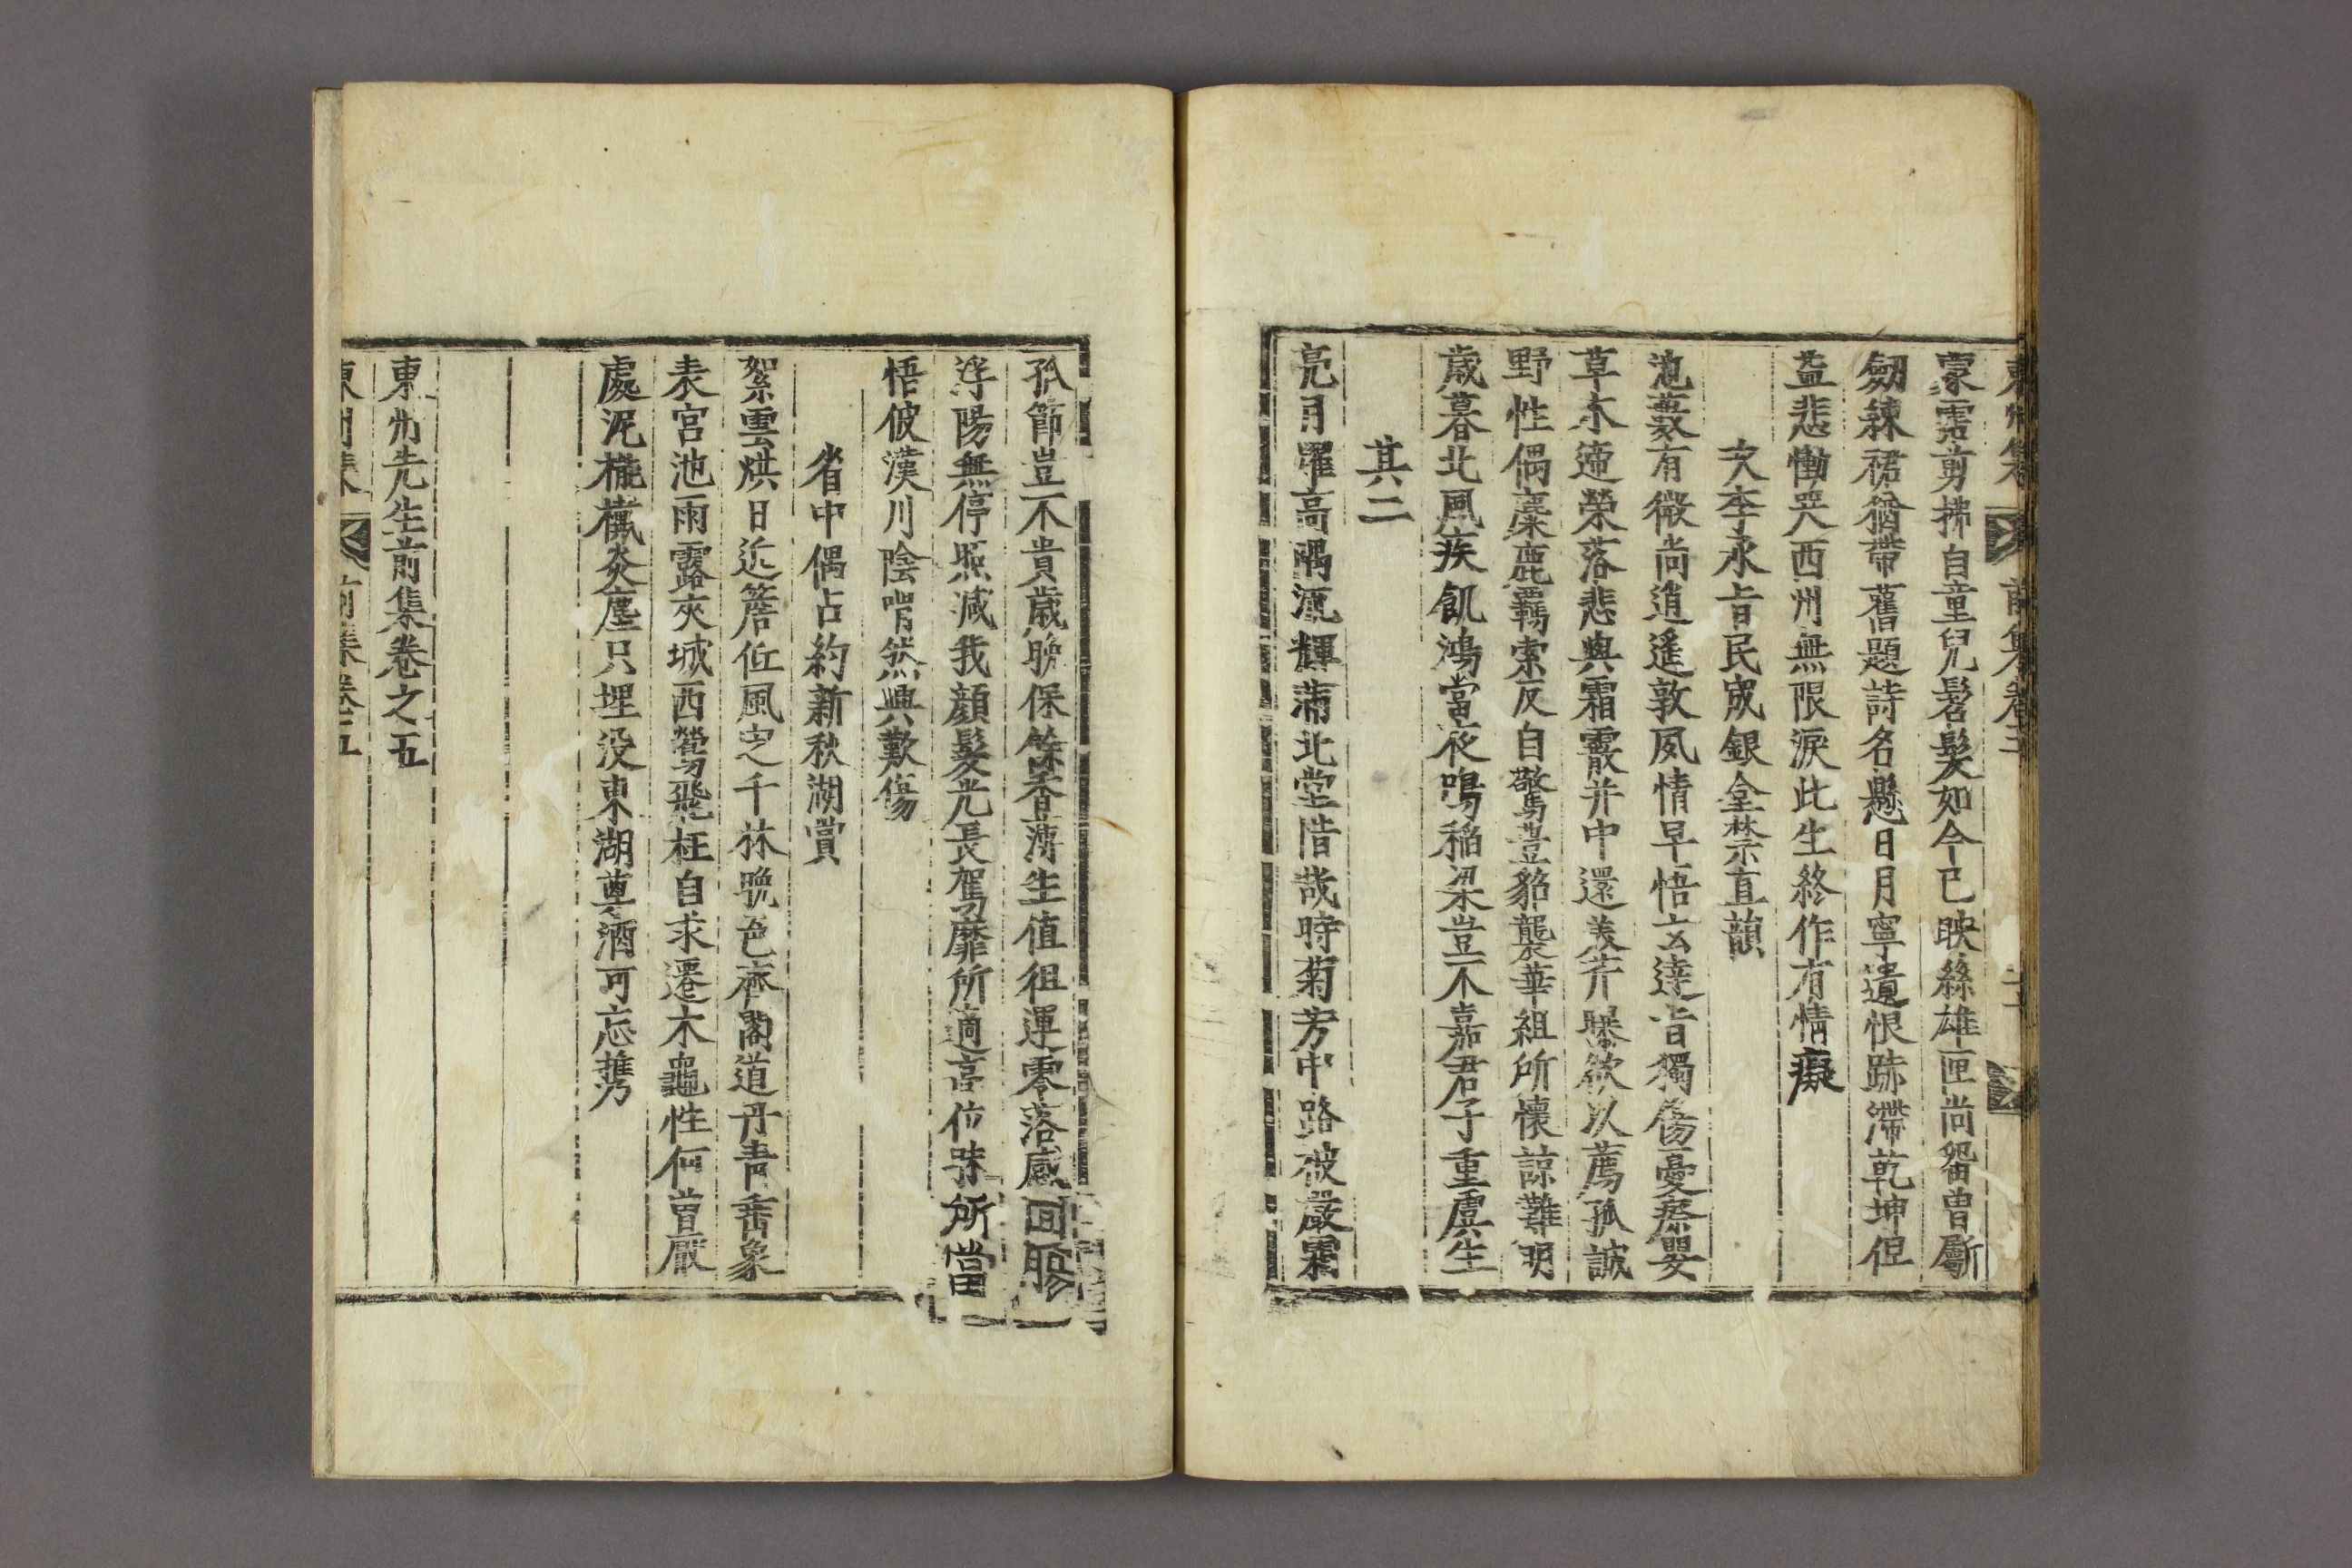 東州集 前集卷五
蒙露剪拂自童兒髫髮如今已映絲雄匣尚留曾斸
劒練裙猶帶舊題詩名懸日月寧遺恨跡滯乾坤但
益悲慟哭西州無限淚此生終作有情癡
次李永旨民宬銀臺禁直韻
池藪有微尚逍遙敦夙情早悟玄達旨獨傷憂療嬰
草木遞榮落悲與霜霰并中還羨芹曝欲以薦孤誠
野性偶麋鹿羈索反自驚豈貂襲華組所懷諒難明
歲暮北風疾飢鴻當夜鳴稻粱豈不嘉君子重虞生
其二
亮月曜高隅流輝滿北堂惜哉時菊芳中路被嚴霜
孤節豈不貴歲晚保餘香薄生值徂運零落感回膓
浮陽無停照減我顔髮光長駕靡所適高位昧所當
悟彼漢川陰喟然興歎傷
省中偶占約新秋湖賞
絮雲烘日近簷低風定千林晚色齊閣道丹青垂象
表宮池雨露夾城西鶯飛枉自求遷木龜性何曾厭
處泥櫳檻炎塵只埋沒東湖尊酒可忘携
東州先生前集卷之五
東州集 前集卷五